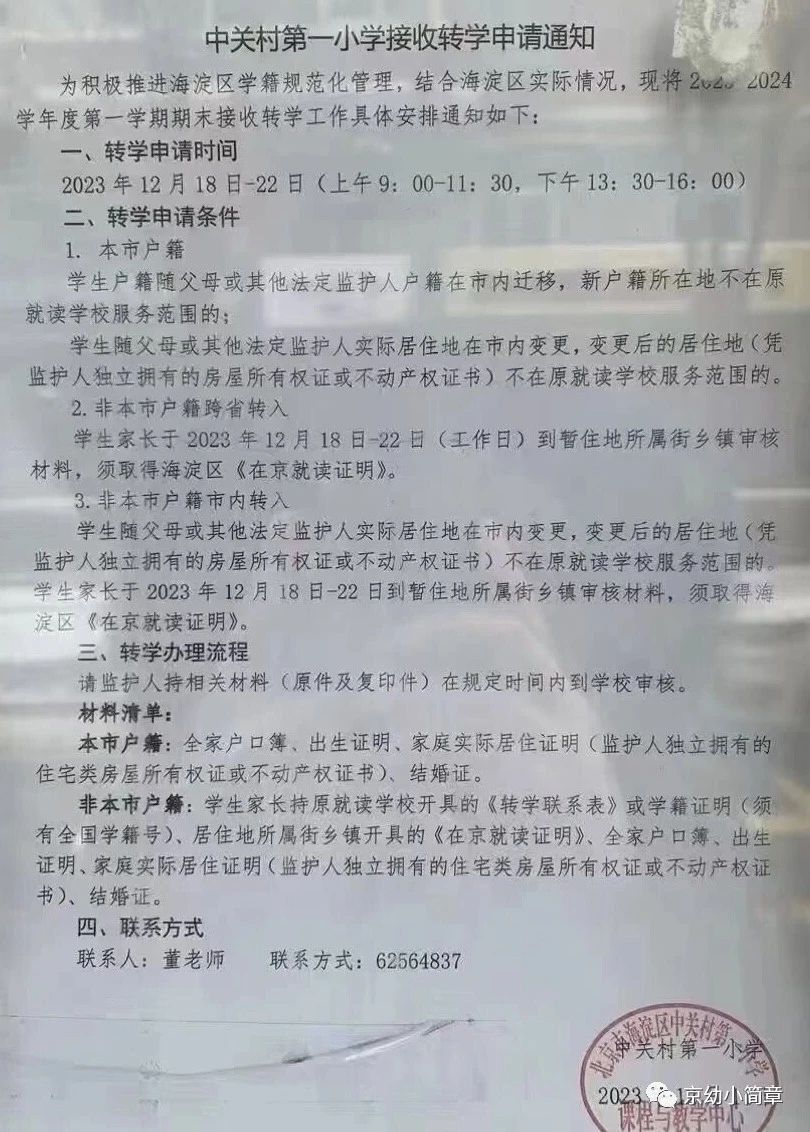 中关村第一小学接收转学申请通知
为积极推进海淀区学籍规范化管理，结合海淀区实际情况，现将 2023-2024
学年度第一学期期末接收转学工作具体安排通知如下：
一、转学申请时间
2023 年 12 月 18 日-22 日（上午 9：00-11：30，下午 13：30-16：00）
二、转学申请条件
1. 本市户籍
学生户籍随父母或其他法定监护人户籍在市内迁移，新户籍所在地不在原
就读学校服务范围的；
学生随父母或其他法定监护人实际居住地在市内变更，变更后的居住地（凭
监护人独立拥有的房屋所有权证或不动产权证书）不在原就读学校服务范围的。
2.非本市户籍跨省转入
学生家长于 2023 年 12 月 18 日-22 日（工作日）到暂住地所属街乡镇审核
材料，须取得海淀区《在京就读证明》。
3.非本市户籍市内转入
学生随父母或其他法定监护人实际居住地在市内变更，变更后的居住地（凭
监护人独立拥有的房屋所有权证或不动产权证书）不在原就读学校服务范围的。
学生家长于 2023 年 12 月 18 日-22 日到暂住地所属街乡镇审核材料，须取得海
淀区《在京就读证明》。
三、转学办理流程
请监护人持相关材料（原件及复印件）在规定时间内到学校审核。
材料清单：
本市户籍：全家户口簿、出生证明、家庭实际居住证明（监护人独立拥有的
住宅类房屋所有权证或不动产权证书）、结婚证。
非本市户籍：学生家长持原就读学校开具的《转学联系表》或学籍证明（须
有全国学籍号）、居住地所属街乡镇开具的《在京就读证明》、全家户口簿、出生
证明、家庭实际居住证明（监护人独立拥有的住宅类房屋所有权证或不动产权证
书）、结婚证。
四、联系方式
联系人：董老师 联系方式：62564837
北京市海淀区中关村第一小学
中关村第一小学
2023
课程与教学中心
京幼小简章